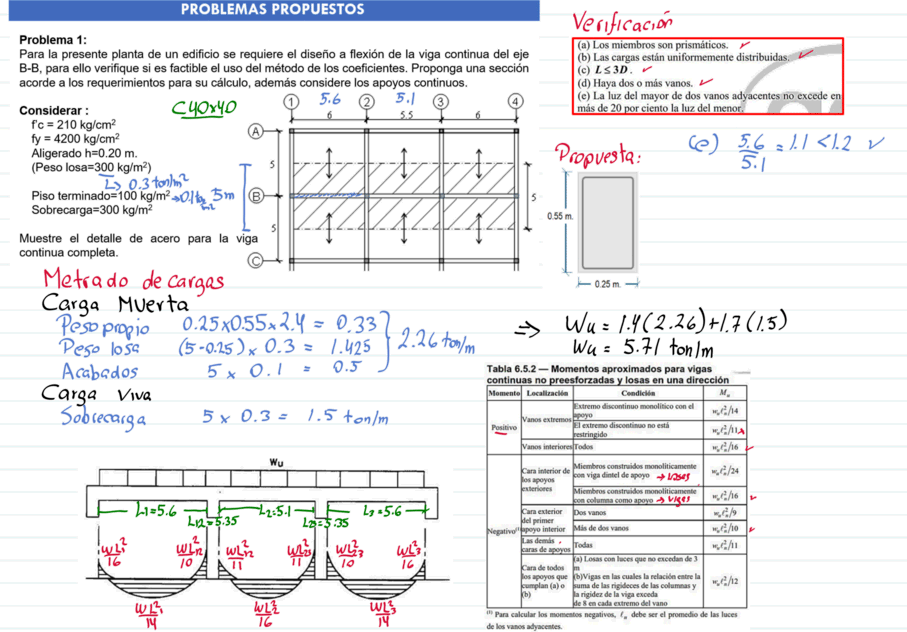 PROBLEMAS PROPUESTOS
Problema 1:
Para la presente planta de un edificio se requiere el diseño a flexión de la viga continua del eje
B-B, para ello verifique si es factible el uso del método de los coeficientes. Proponga una sección
acorde a los requerimientos para su cálculo, además considere los apoyos continuos.
Considerar :
f'c = 210 kg/cm²
fy = 4200 kg/cm²
Aligerado h=0.20 m.
(Peso losa=300 kg/m²)
↳ 0.3 ton/m²
Piso terminado=100 kg/m²
Sobrecarga=300 kg/m²
Muestre el detalle de acero para la viga
continua completa.
C40x40
1 5.6 2 5.1 3 4
6 5.5 6
A
5
5m B 5
5
C
Verificación
(a) Los miembros son prismáticos. ✓
(b) Las cargas están uniformemente distribuidas. ✓
(c) L ≤ 3D . ✓
(d) Haya dos o más vanos. ✓
(e) La luz del mayor de dos vanos adyacentes no excede en
más de 20 por ciento la luz del menor.
(e) 5.6/5.1 = 1.1 < 1.2 ✓
Propuesta:
0.55 m.
0.25 m.
Metrado de cargas
Carga Muerta
Peso propio 0.25x0.55x2.4 = 0.33
Peso losa (5-0.25) x 0.3 = 1.425
Acabados 5 x 0.1 = 0.5
2.26 ton/m
Carga Viva
Sobrecarga 5 x 0.3 = 1.5 ton/m
⇒ Wu = 1.4(2.26)+1.7(1.5)
Wu = 5.71 ton/m
Tabla 6.5.2 — Momentos aproximados para vigas
continuas no preesforzadas y losas en una dirección
Momento Localización Condición Mu
Positivo Vanos extremos Extremo discontinuo monolítico con el
apoyo wuℓn²/14
El extremo discontinuo no está
restringido wuℓn²/11
Vanos interiores Todos wuℓn²/16 ✓
Negativo(1) Cara interior de
los apoyos
exteriores Miembros construidos monolíticamente
con viga dintel de apoyo → losas wuℓn²/24
Miembros construidos monolíticamente
con columna como apoyo → vigas wuℓn²/16 ✓
Cara exterior
del primer
apoyo interior Dos vanos wuℓn²/9
Más de dos vanos wuℓn²/10 ✓
Las demás
caras de apoyos Todas wuℓn²/11
Cara de todos
los apoyos que
cumplan (a) o
(b) (a) Losas con luces que no excedan de 3
m
(b)Vigas en las cuales la relación entre la
suma de las rigideces de las columnas y
la rigidez de la viga exceda
de 8 en cada extremo del vano wuℓn²/12
(1) Para calcular los momentos negativos, ℓn debe ser el promedio de las luces
de los vanos adyacentes.
Wu
L1=5.6 L2=5.1 L3=5.6
L12=5.35 L23=5.35
WL1²/16 WL12²/10 WL12²/11 WL23²/11 WL23²/10 WL3²/16
WL1²/14 WL2²/16 WL3²/14